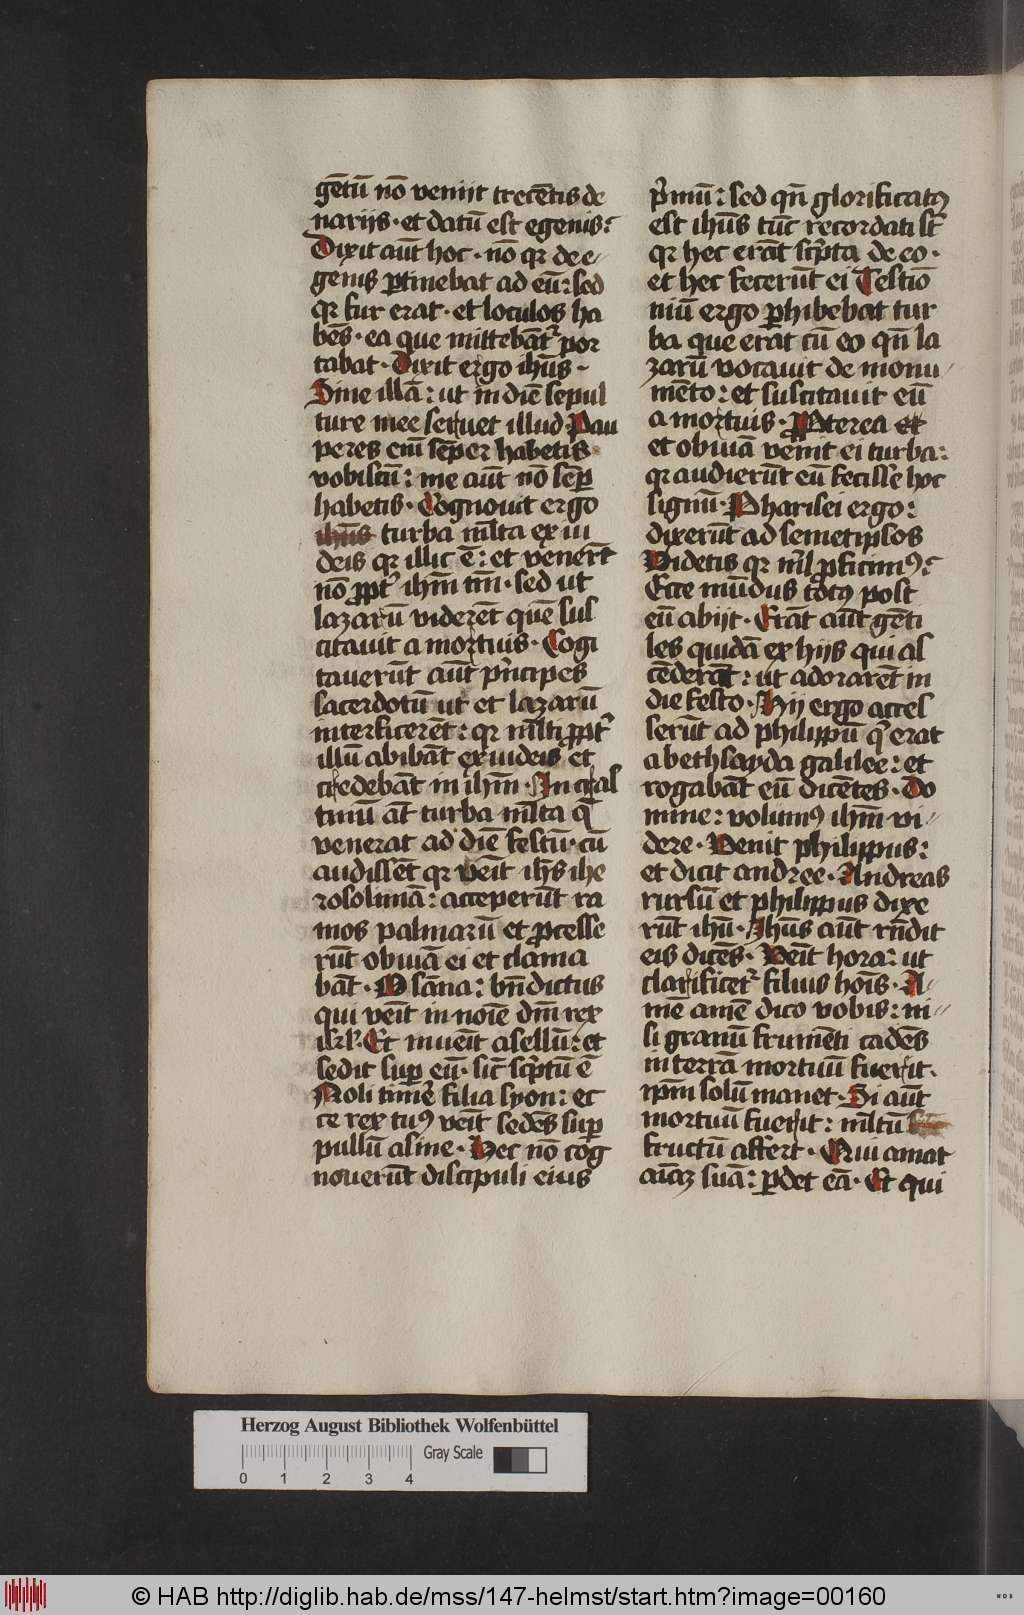 gētū nō veniit trecētis de
narijs · et datū est egenis?
Dixit aūt hoc · nō qr de e-
genis ptinebat ad eū: sed
qr fur erat · et loculos ha
bēs · ea que mittebāt᷑ por
tabat · Dixit ergo ihūs ·
Sine illā: ut in diē sepul
ture mee servet illud Pau
peres eni sēper habetis
vobiscū: me aūt nō sēp
habetis · Cognovit ergo
ihūs turba mlta ex iu
deis qr illic ē: et venerūt
nō ppt᷑ ihm tm · sed ut
lazarū viderēt quē sus
citavit a mortuis · Cogi
taverūt aūt pncipes
sacerdotū ut et lazarū
interficerēt: qr mlti ppt᷑
illū abibāt ex iudeis et
credebāt in ihm · In cras
tinū at turba mlta q̄
venerat ad diē festū · cū
audissēt qr veit ihs ihe
rosolimā: acceperūt ra
mos palmarū et pcesse
rūt obviā ei et clama
bāt · Osāna: bndictus
qui veit in noie dni rex
isrl · Et inveit asellū: et
sedit sup eū · sic scptū ē
Noli timē filia syon: ec
ce rex tuꝰ veit sedēs sup
pullū asine · Hec nō cog
noverūt discipuli eius
pmū: sed qn glorificatꝰ
est ihūs tūc recordati st
qr hec erāt scpta de eo ·
et hec fecerūt ei Testio
niū ergo phibebat tur
ba que erat cū eo qn la
zarū vocavit de monu
mēto: et suscitavit eū
a mortuis · Pterea et
et obviā venit ei turba:
qr audierūt eū fecisse hoc
signū · Pharisei ergo:
dixerūt ad semetipsos
Videtis qr nl pficimꝰ?
Ecce mūdus totꝰ post
eū abijt · Erāt aūt gēti
les quidā ex hijs qui as
cēderāt: ut adorarēt in
die festo · Hij ergo acces
serūt ad philippū q erat
a bethsayda galilee: et
rogabāt eū dicētes · Do
mine: volumꝰ ihm vi-
dere · Venit philippus:
et dicit andree · Andreas
rursū et philippus dixe
rūt ihū · Ihūs aūt rndit
eis dicēs · Veit hora: ut
clarificet᷑ filius hois · A-
mē amē dico vobis: ni-
si granū frumēti cadēs
in terrā mortuū fuerit ·
ipm solū manet · Si aūt
mortuū fuerit: mltū
fructū affert · Qui amat
aiaz suā: pdet eā · Et qui
Herzog August Bibliothek Wolfenbüttel
0 1 2 3 4
Gray Scale
© HAB http://diglib.hab.de/mss/147-helmst/start.htm?image=00160